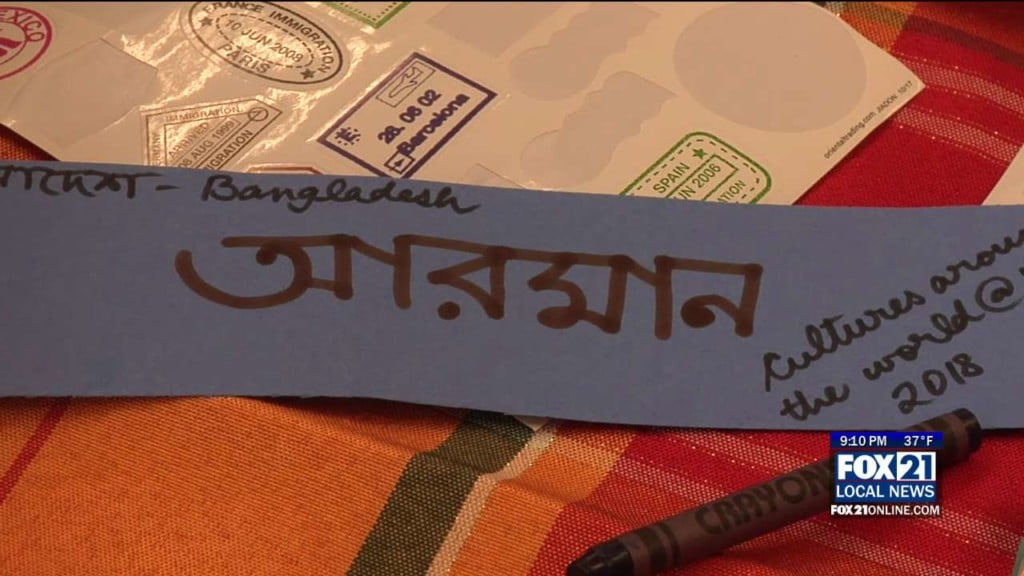 MEXICO
FRANCE IMMIGRATION
10 JUN 2008
PARIS
IMMIGRATION
AUG 1995
IMMIGRATION
28. 06 02
Barcelona
SPAIN
JUN 2006
orientaltrading.com
- Bangladesh
আরমান
Cultures around
the world @
2018
CRAYON
9:10 PM 37°F
FOX 21
LOCAL NEWS
FOX21ONLINE.COM